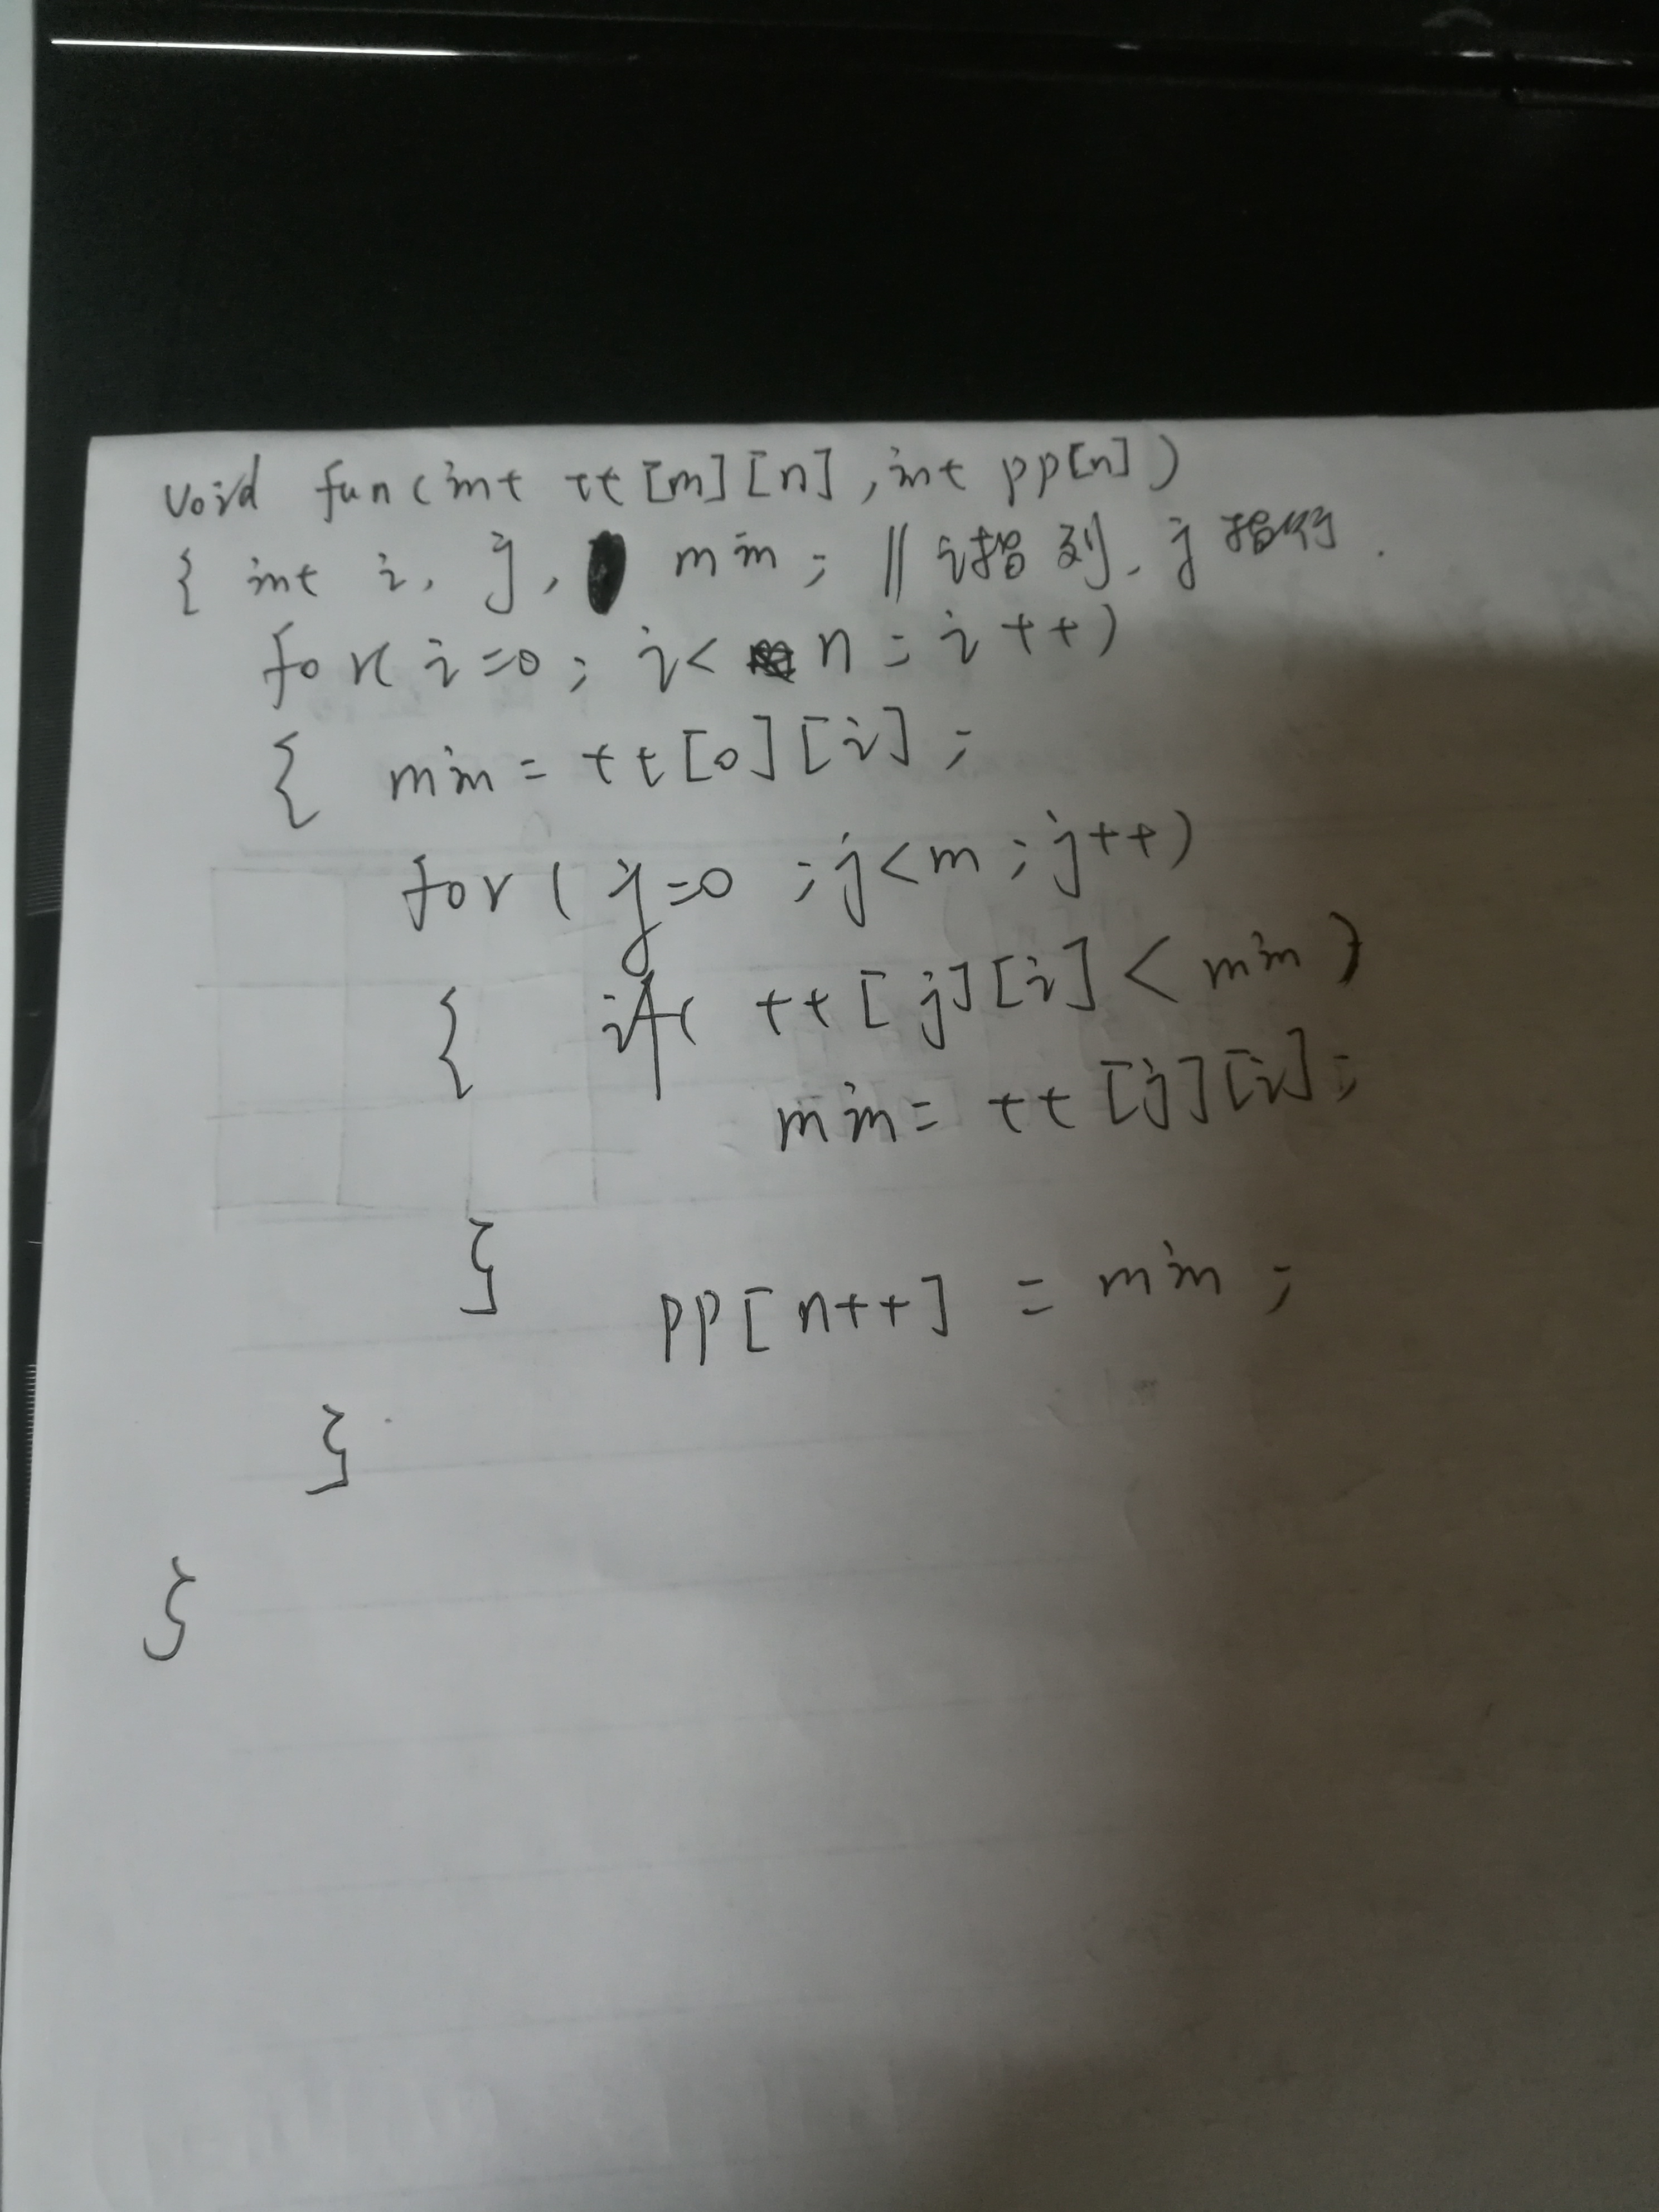 void fun(int tt[m][n],int pp[n])
{ int i, j, min; //i指列,j指行.
for(i=0; i<n; i++)
{ min=tt[0][i];
for(j=0;j<m;j++)
{ if(tt[j][i]<min)
min=tt[j][i];
}
pp[n++]=min;
}
}